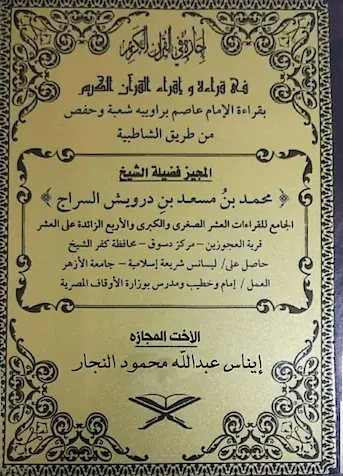 إجازة في القرآن الكريم
في قراءة و إقراء القرآن الكريم
بقراءة الإمام عاصم براوييه شعبة وحفص
من طريق الشاطبية
المجيز فضيلة الشيخ
﴿ محمد بنُ مسعد بنِ درويش السراج ﴾
الجامع للقراءات العشر الصغرى والكبرى والأربع الزائدة على العشر
قرية العجوزين – مركز دسوق – محافظة كفر الشيخ
حاصل على / ليسانس شريعة إسلامية – جامعة الأزهر
العمل / إمام وخطيب ومدرس بوزارة الأوقاف المصرية
الأخت المجازه
إيناس عبدالله محمود النجار